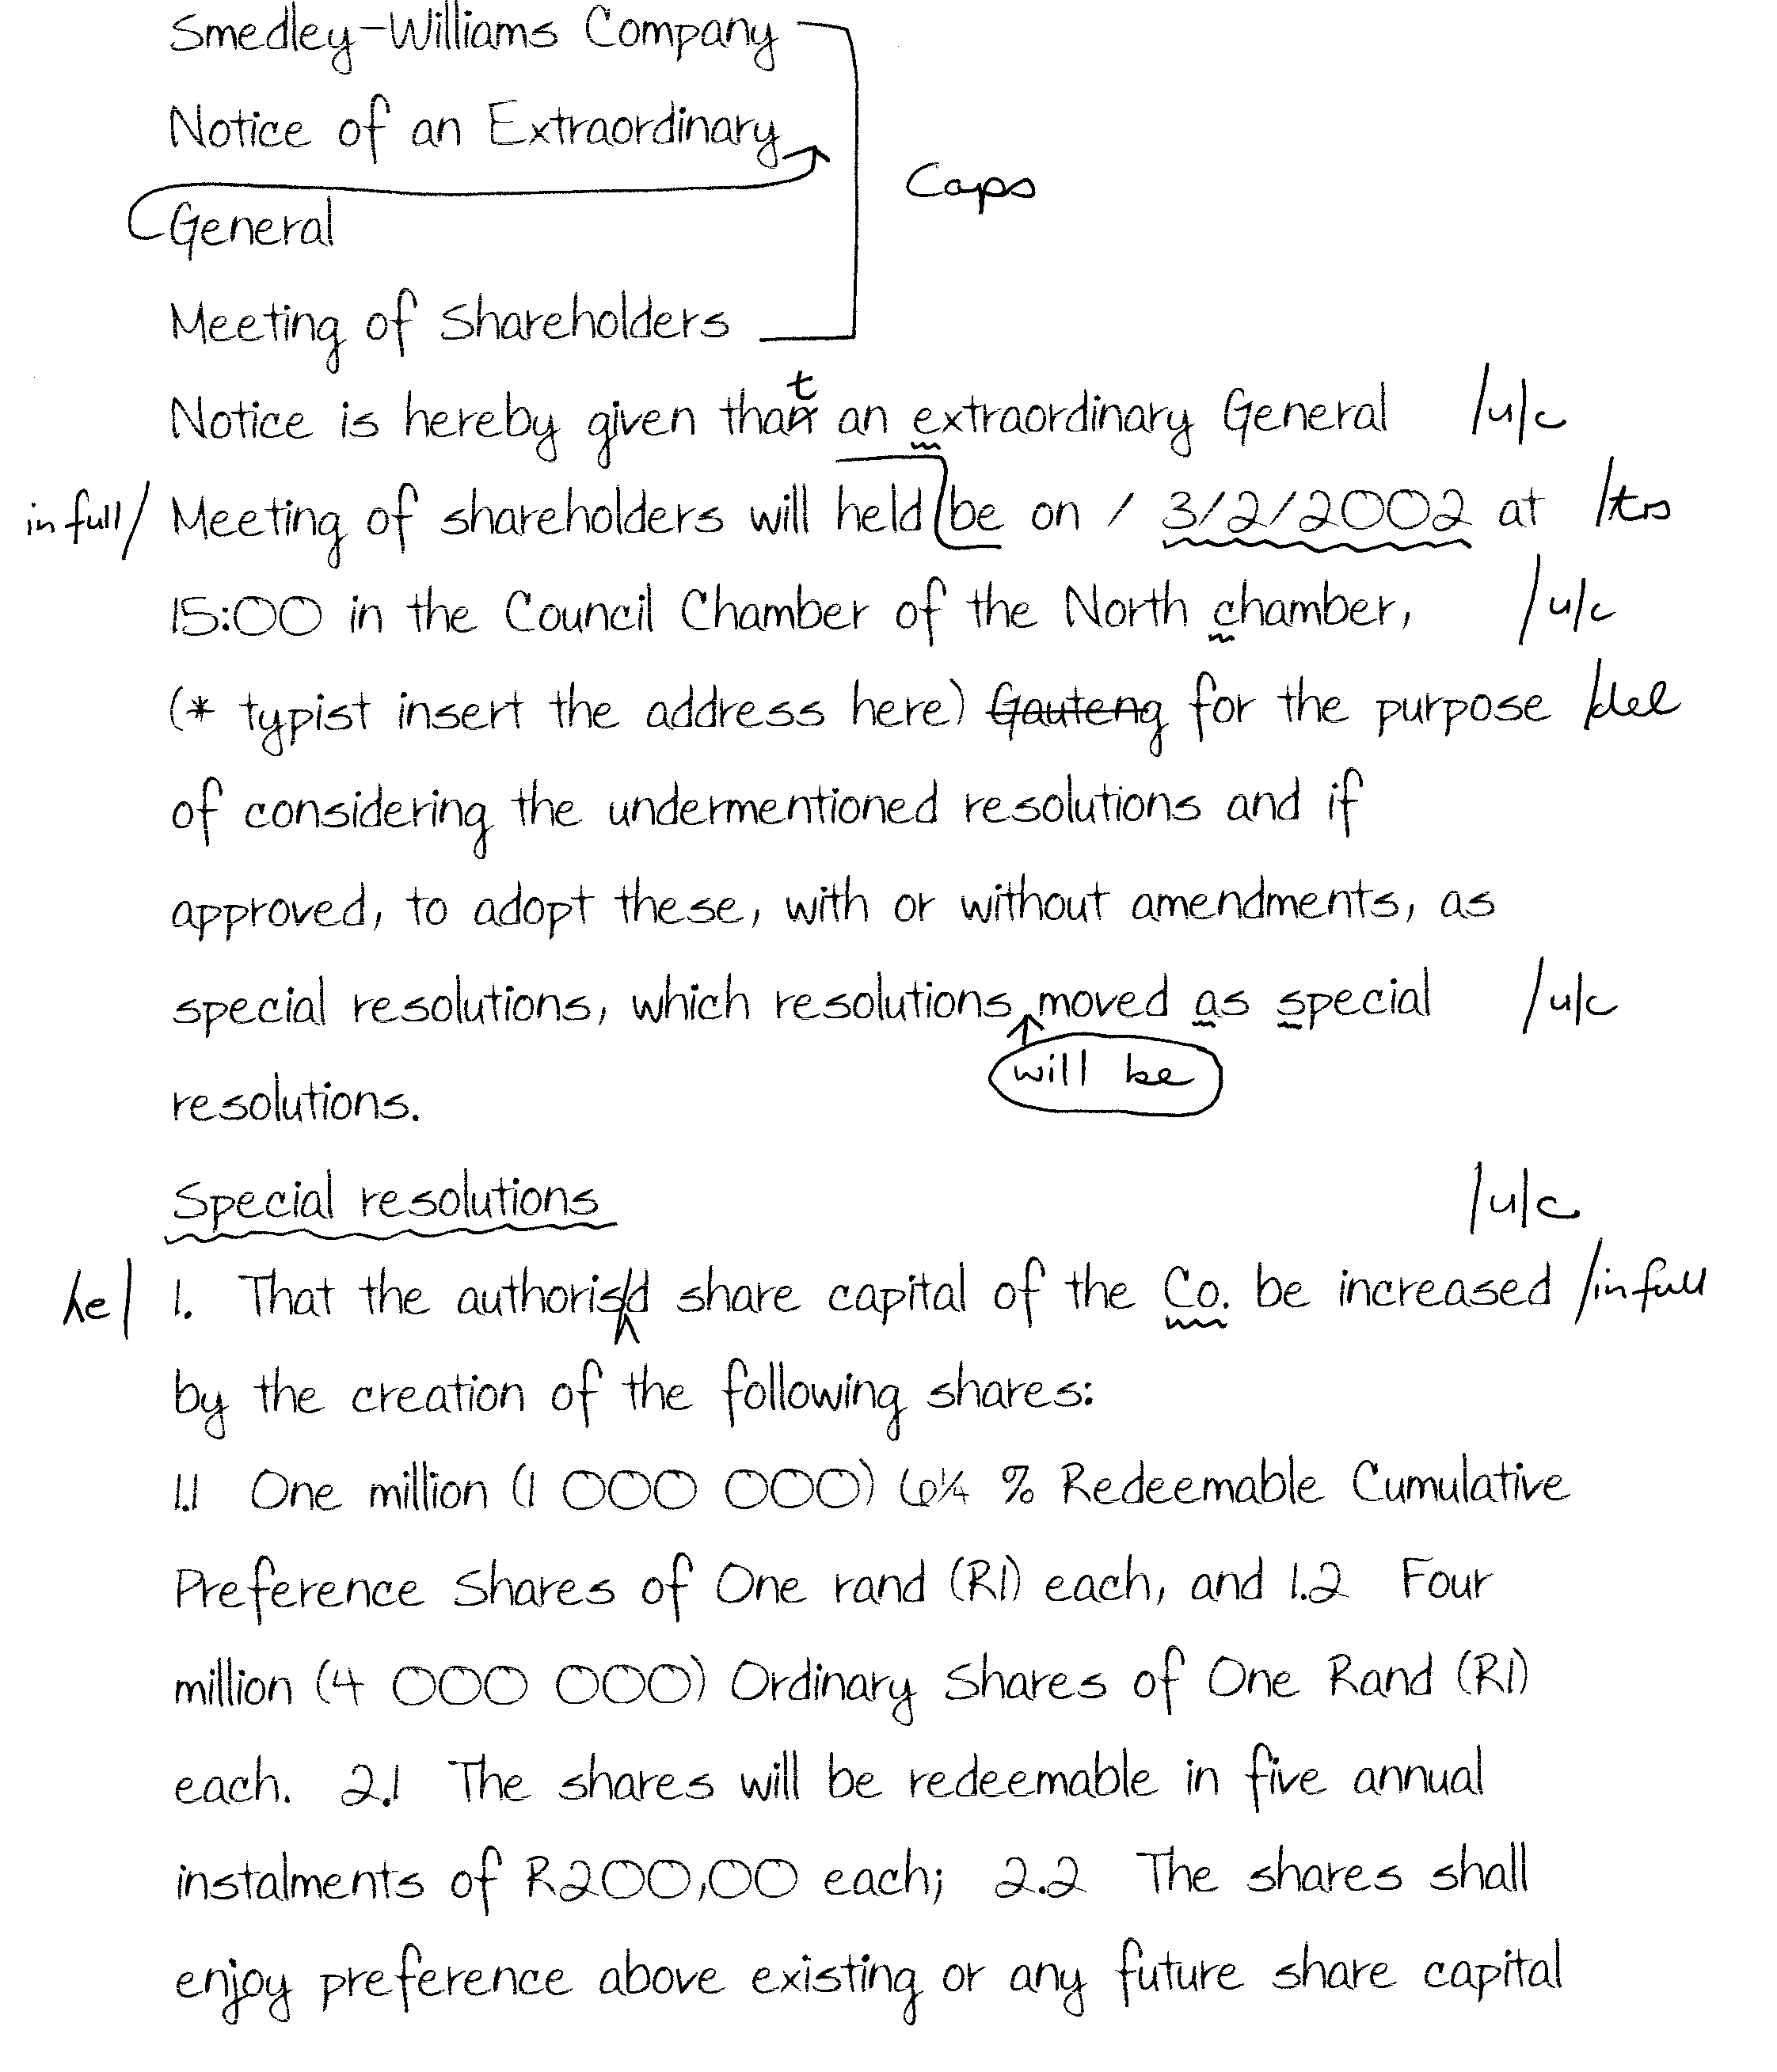 Smedley-Williams Company
Notice of an Extraordinary
Caps
General
Meeting of Shareholders
t
Notice is hereby given than an extraordinary General /u/c
in full/ Meeting of shareholders will held be on / 3/2/2002 at /trs
15:00 in the Council Chamber of the North chamber, /u/c
(* typist insert the address here) Gauteng for the purpose /del
of considering the undermentioned resolutions and if
approved, to adopt these, with or without amendments, as
special resolutions, which resolutions moved as special /u/c
will be
resolutions.
Special resolutions /u/c
he/ 1. That the authorisd share capital of the Co. be increased /in full
by the creation of the following shares:
1.1 One million (1 000 000) 6¼ % Redeemable Cumulative
Preference Shares of One rand (R1) each, and 1.2 Four
million (4 000 000) Ordinary Shares of One Rand (R1)
each. 2.1 The shares will be redeemable in five annual
instalments of R200,00 each; 2.2 The shares shall
enjoy preference above existing or any future share capital